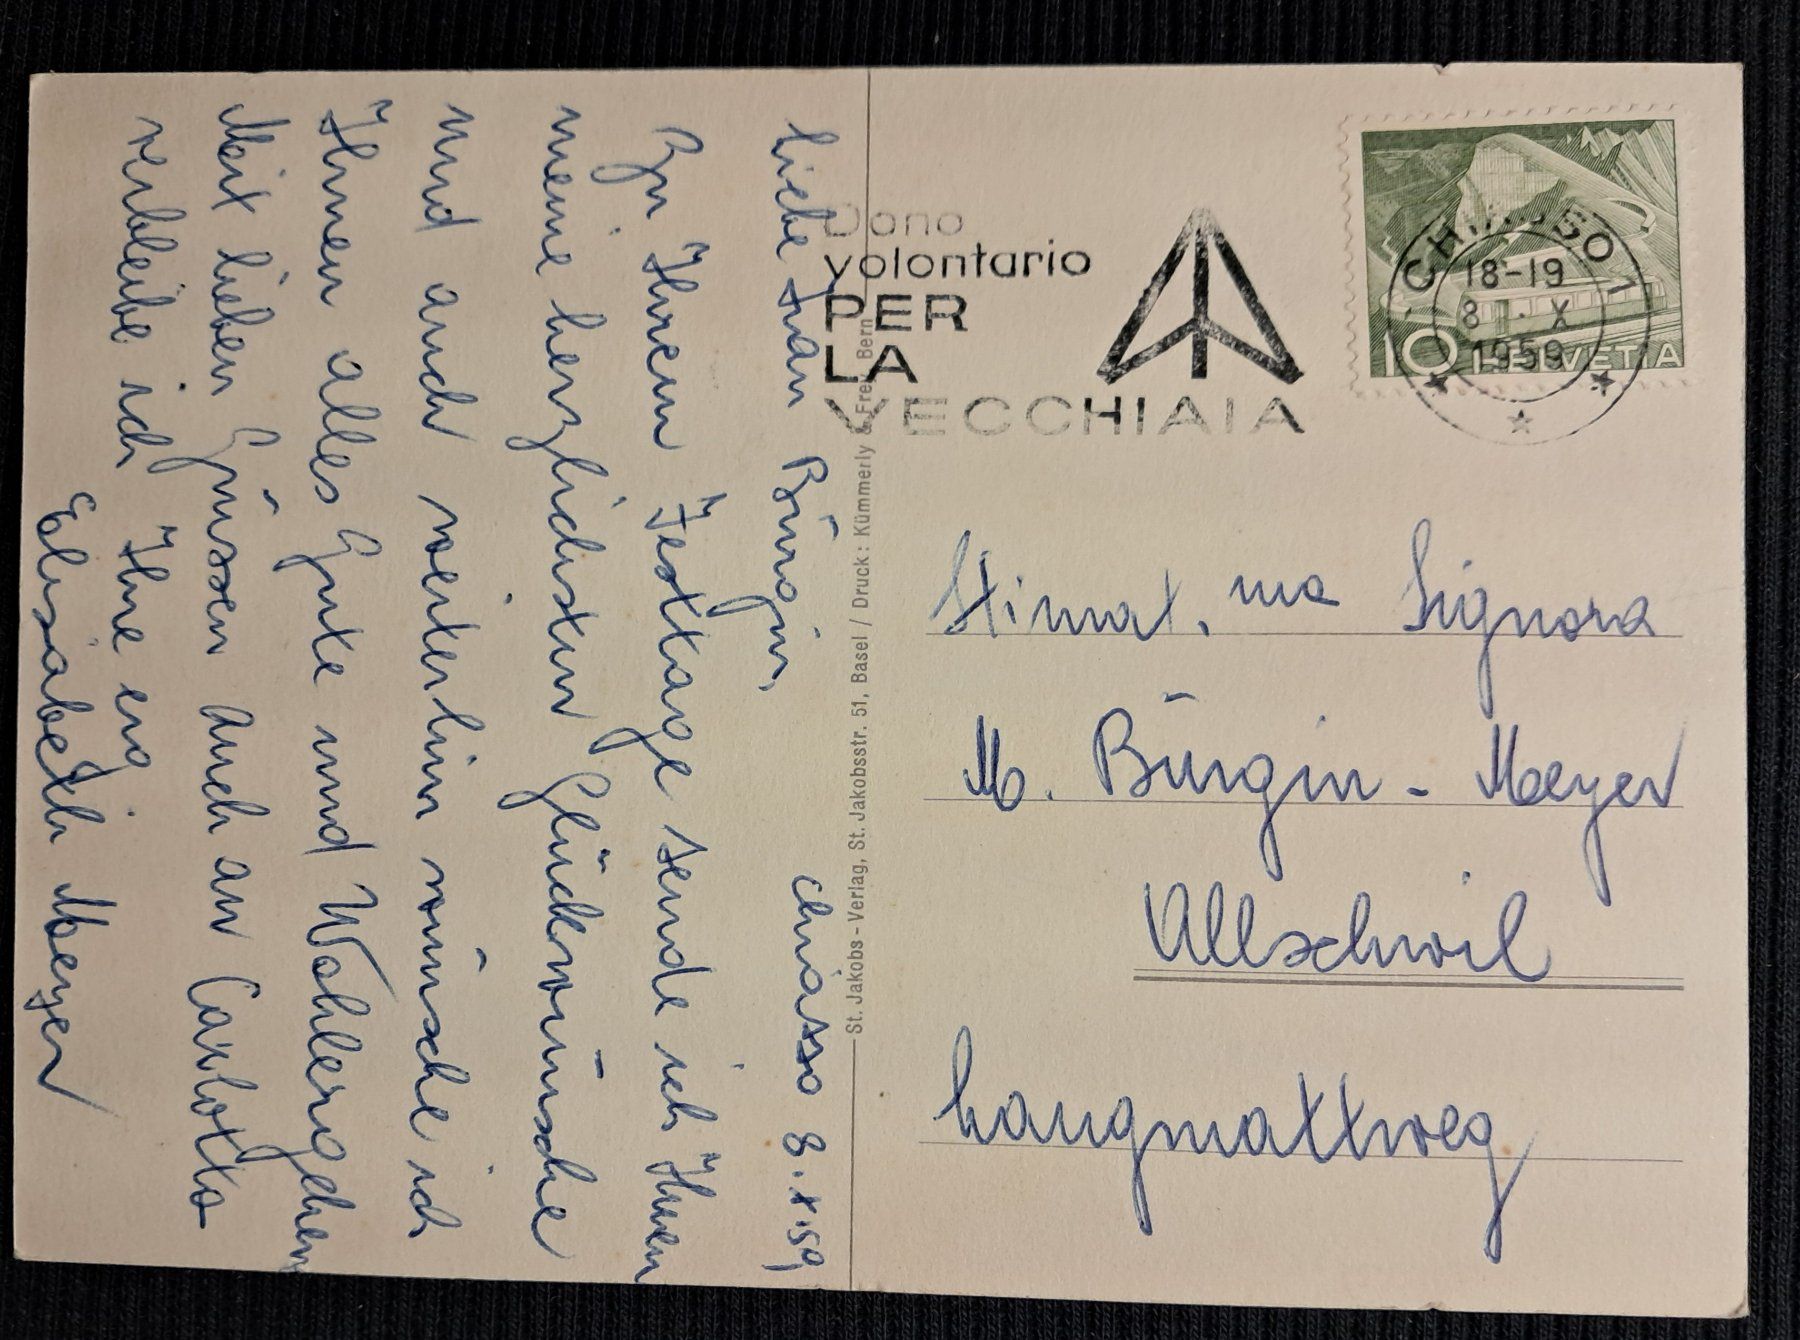 Chiasso 8.X.59
Liebe Frau Bürgin,
Zu Ihrem Festtage sende ich Ihnen
meine herzlichsten Glückwünsche
und auch weiterhin wünsche ich
Ihnen alles Gute und Wohlergehen
Mit lieben Grüssen auch an Carlotta
verbleibe ich Ihre erg
Elisabeth Meyer
St. Jakobs-Verlag, St. Jakobsstr. 51, Basel / Druck: Kümmerly & Frey Bern
Dono
volontario
PER
LA
VECCHIAIA
CHIASSO 1
18-19
8.X
1959
10 HELVETIA
Stimat.ma Signora
M. Bürgin-Meyer
Allschwil
Langmattweg